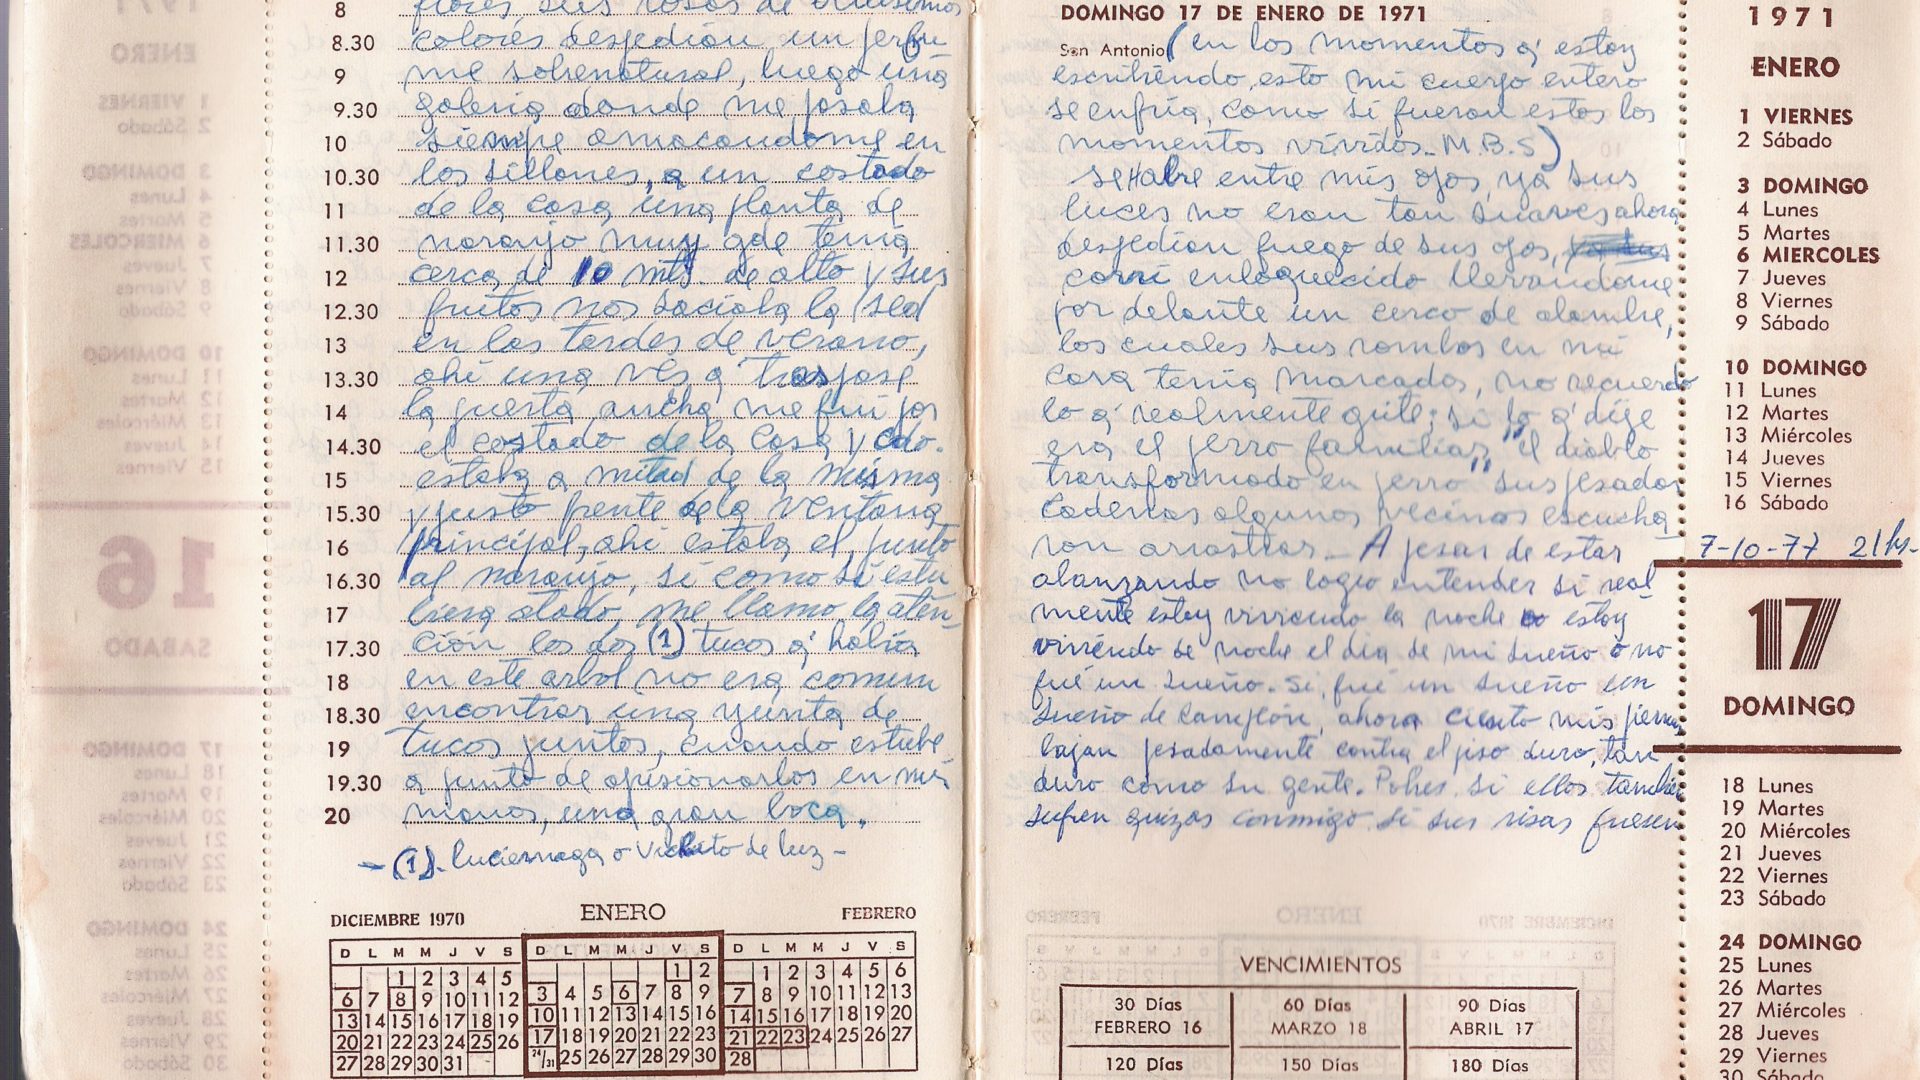 8 flores, sus rosas de
8.30 colores despedían un perfu
9 me sobrenatural, luego una
9.30 galería donde me pasaba
10 siempre amacandome en
10.30 los sillones, a un costado
11 de la casa una planta de
11.30 naranjo muy gde tenía
12 cerca de 10 mts. de alto y sus
12.30 frutos nos saciaba la sed
13 en las tardes de verano,
13.30 ahí una vés q' traspasé
14 la puerta ancha me fuí por
14.30 el costado de la casa y cdo.
15 estaba a mitad de la misma
15.30 y justo frente de la ventana
16 principal, ahí estaba el, junto
16.30 al naranjo, sí como si estu
17 biera atado, me llamo la aten_
17.30 ción los dos (1) tucos q' había
18 en este arbol no era comun
18.30 encontrar una yunta de
19 tucos juntos, cuando estube
19.30 a punto de apisionarlos en mis
20 manos, una gran boca,
- (1). luciernaga o vichito de luz -
DICIEMBRE 1970 ENERO FEBRERO
D L M M J V S D L M M J V S D L M M J V S
1 2 3 4 5 1 2 1 2 3 4 5 6
6 7 8 9 10 11 12 3 4 5 6 7 8 9 7 8 9 10 11 12 13
13 14 15 16 17 18 19 10 11 12 13 14 15 16 14 15 16 17 18 19 20
20 21 22 23 24 25 26 17 18 19 20 21 22 23 21 22 23 24 25 26 27
27 28 29 30 31 - 24/31 25 26 27 28 29 30 28
DOMINGO 17 DE ENERO DE 1971
San Antonio (en los momentos q' estoy
escribiendo esto mi cuerpo entero
se enfría, como si fueron estos los
momentos vividos_ M.B.S)
se Habre entre mis ojos, ya sus
luces no eran tan suaves ahora
despedían fuego de sus ojos,
corrí enloquecido llevandome
por delante un cerco de alambre,
los cuales sus rombos en mi
cara tenía marcados, no recuerdo
lo q' realmente grite; si lo q' dije
era el perro familiar, "el diablo
transformado en perro" sus pesadas
cadenas algunos vecinos escucha
ron arrastrar_ A pesar de estar
abanzando no logro entender si real_
mente estoy viviendo la noche o estoy
viviendo de noche el día de mi sueño o no
fué un sueño. Si, fué un sueño un
sueño de , ahora mis piernas
bajan pesadamente contra el piso duro, tan
duro como su gente. Pobres si ellos también
sufren quizas conmigo. Si sus risas fuesen
VENCIMIENTOS
30 Días 60 Días 90 Días
FEBRERO 16 MARZO 18 ABRIL 17
120 Días 150 Días 180 Días
1971
ENERO
1 VIERNES
2 Sábado
3 DOMINGO
4 Lunes
5 Martes
6 MIERCOLES
7 Jueves
8 Viernes
9 Sábado
10 DOMINGO
11 Lunes
12 Martes
13 Miércoles
14 Jueves
15 Viernes
16 Sábado
7-10-77 21 hs.
17
DOMINGO
18 Lunes
19 Martes
20 Miércoles
21 Jueves
22 Viernes
23 Sábado
24 DOMINGO
25 Lunes
26 Martes
27 Miércoles
28 Jueves
29 Viernes
30 Sábado